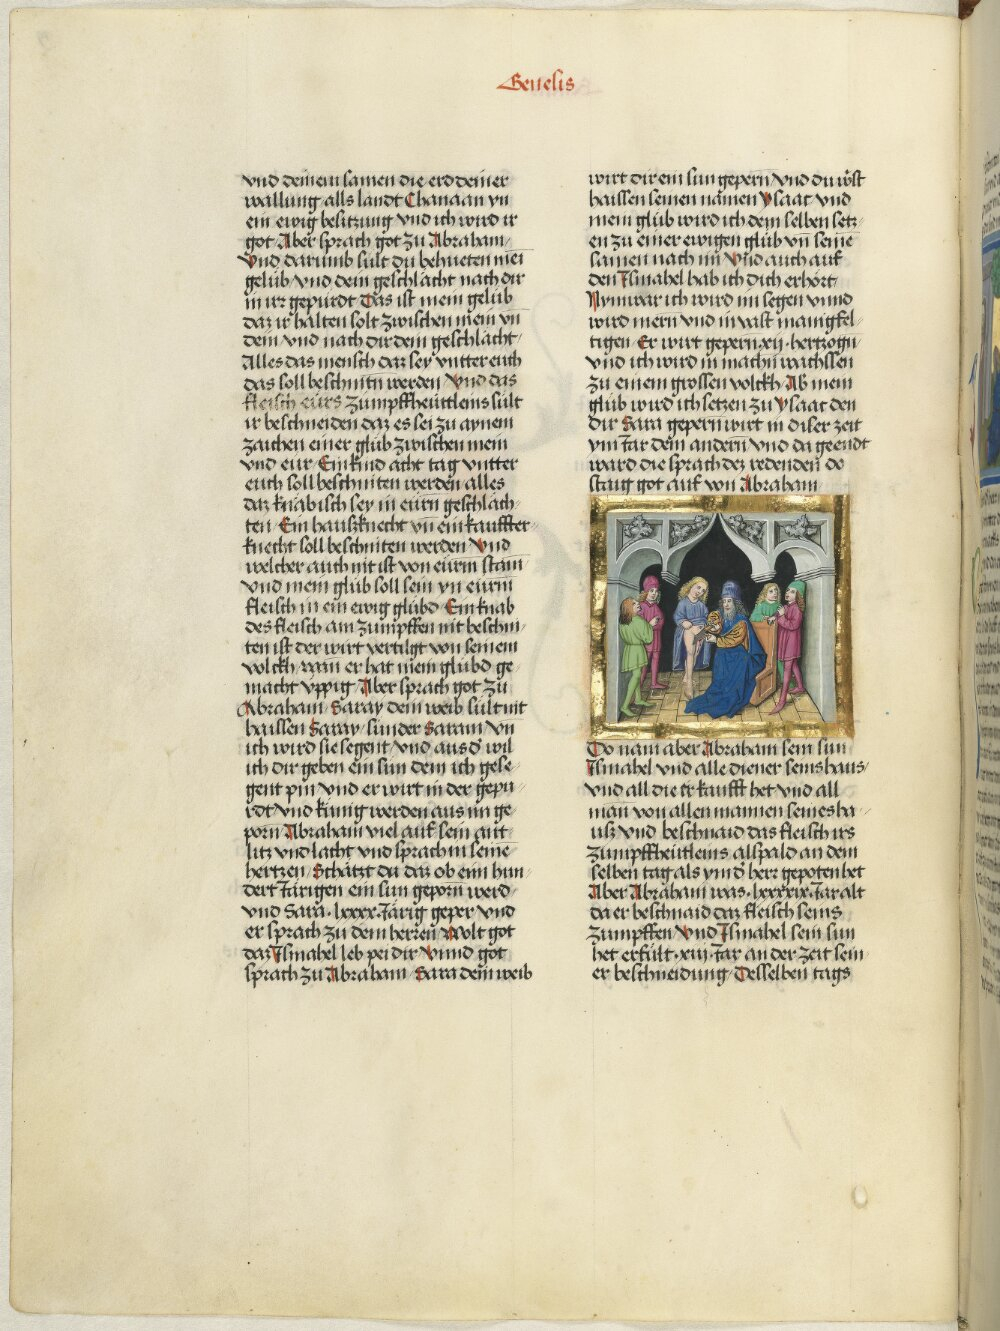 Genesis
vnd deinem samen die erd deiner
wallung alls landt Chanaan vn̄
ein ewig besitzung vnd ich wird ir
got Aber sprach got zu Abraham
Vnd darumb sült du behüeten mei
gelüb vnd dein geschlächt nach dir
in irr gepürdt Das ist mein gelüb
daz ir halten solt zwischen mein vn̄
dein vnd nach dir dem geschlächt
Alles das mensch daz sey vntter euch
das soll beschnitn̄ werden Vnd das
fleisch eürs zumpffheütleins sült
ir beschneiden daz es sei zu aynem
zaichen einer glüb zwischen mein
vnd eur Ein kind acht tag vntter
euch soll beschniten werden alles
daz knäbisch sey in eürn geschläch
ten Ein hauszknecht vn̄ ein kauffter
knecht soll beschniten werden Vnd
welcher auch nit ist von eürm stam
vnd mein glüb soll sein yn eürm
fleisch in ein ewig glübd Ein knab
des fleisch am zumpffen nit beschni
ten ist der wirt vertilgt von seinem
volckh wan er hat mein glübd ge
macht üppig Aber sprach got zu
Abraham Saray dein weib sült nit
haissen Saray sunder Saram vn̄
ich wird sie segent vnd aus d' wil
ich dir geben ein sun dem ich gese
gent pin vnd er wirt in der gepu
rdt vnd künig werden aus im ge
porn Abraham viel auf sein ant
litz vnd lacht vnd sprach in seine
hertzen Schätzt du daz ob eim hun
dert Järigen ein sun geporn werd
vnd Sara lxxxx Järig geper vnd
er sprach zu dem herren Wolt got
daz Ismahel leb pei dir Vnnd got
sprach zu Abraham Sara dein weib
wirt dir ein sun gepern vnd du wüst
haissen seinen namen Ysaac vnd
mein glüb wird ich dem selben setz
en zu einer ewigen glüb vn̄ seine
samen nach im Vnd auch auf
den Ismahel hab ich dich erhört
Nym war ich wird im segen vnnd
wird mern vnd in vast manigfel
tigen Er wirt gepern xij hertzogn̄
vnd ich wird in machn̄ wachssen
zu einem grossen volckh Ab mein
glüb wird ich setzen zu Ysaac den
dir Sara gepern wirt in diser zeit
ym Jar dem andern vnd da geendt
ward die sprach dez redenden do
staig got auf von Abraham
Do nam aber Abraham sein sun
Ismahel vnd alle diener seins haus
vnd all die er kaufft het vnd all
man von allen mannen seines ha
usz vnd beschnaid das fleisch irs
zumpffheütleins alspald an dem
selben tag als ym d' herr gepoten het
Aber Abraham was lxxxxix Jar alt
da er beschnaid daz fleisch seins
zumpffen Vnd Ismahel sein sun
het erfült xiij Jar an der zeit sein
er beschneidung Desselben tags